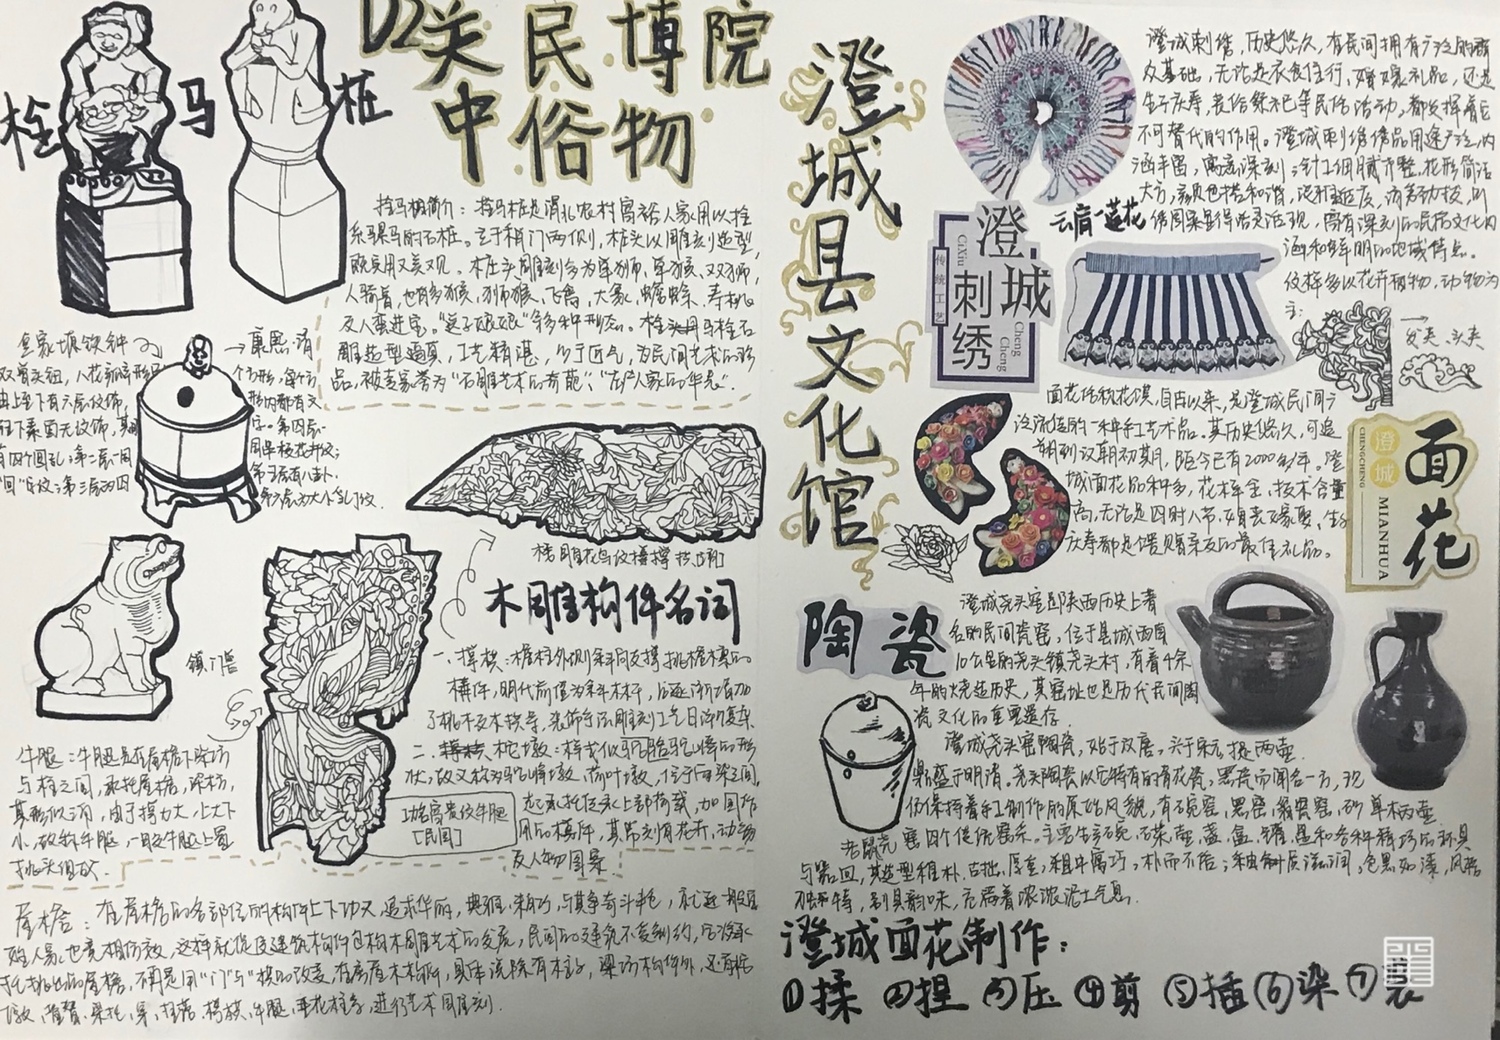 D2关中民俗博物院
拴马桩
拴马桩简介：拴马桩是渭北农村富裕人家用以拴
系骡马的石桩。立于稍门两侧，桩头以雕刻造型，
既实用又美观。桩头圆雕刻多为单狮、单猴、双狮、
人骑兽，也有多猴、狮猴、飞禽、大象、蟾蜍、寿桃
及人蛮进宝。"送子娘娘"等多种形态。拴马桩石
雕造型逼真，工艺精湛，少于匠气，为民间艺术的珍
品，被专家誉为"石雕艺术的奇葩"、"庄户人家的华表"。
皇家坡铁钟
双兽头钮，八花瓣肩形
由上至下有六层纹饰，
有四个圆孔；第二层一周
"回"字纹；第三层为四
康熙·清
个方形，每个方
形内都有文
字。第四层一
周串枝花卉纹；
第五层有八卦、
第六层为大小乳丁纹。
镇门兽
透雕花鸟纹撑拱[明]
木雕构件名词
一、撑拱：檐柱外侧斜向支撑挑檐檩的
构件，明代前仅为斜木杆，后逐渐增加
了挑木及木拱等，装饰手法雕刻工艺日渐复杂
二、柁墩：样式似驼驼峰的形
状，故又称为驼峰墩、荷叶墩，位于两梁之间，
起承托传承上部荷载，加固作
用的构件，其常刻有花卉、动物
及人物图案
功名富贵纹牛腿
[民国]
牛腿：牛腿是在屋檐下梁枋
与柱之间，承托屋檐，梁枋，
其形似三角，由于撑力大，上大下
小，故称牛腿，一般在牛腿上置
挑头组成。
屋檐：在屋檐的各部位的构件上下功夫，追求华丽，典雅，精巧，与其争奇斗艳，就连一般百
姓人家，也竞相仿效，这样就促进建筑构件包构木雕艺术的发展，民间的建筑不受制约，
墩、雀替、梁托、罩、挂落、撑拱、牛腿、垂花柱等，进行艺术雕刻。
澄城县文化馆
澄城刺绣，历史悠久，在民间拥有广泛的群
众基础，无论是衣食住行，婚嫁礼品，还是
生子庆寿，丧俗祭祀等民俗活动，都发挥着它
不可替代的作用。澄城刺绣绣品用途广泛，内
涵丰富，寓意深刻；针工细腻齐整，花形简洁
大方，颜色搭配和谐，
绣图案显得活灵活现，富有深刻的民俗文化内
涵和鲜明的地域特点。
纹样多以花卉植物，动物为
主：
云肩—莲花
澄城刺绣
CiXiu
传统工艺
Cheng Cheng
发夹、头夹
面花俗称花馍，自古以来，是澄城民间广
泛流传的一种手工艺术品。其历史悠久，可追
溯到汉朝初期，距今已有2000多年。澄
城面花品种多，花样全，技术含量
高，无论是四时八节，婚丧嫁娶，生子
庆寿都是馈赠亲友的最佳礼品。
澄城
CHENGCHENG
面花
MIANHUA
陶瓷
澄城尧头窑是陕西历史上著
名的民间瓷窑，位于县城西南
10公里的尧头镇尧头村，有着千余
年的烧造历史，其窑址也是历代民间陶
瓷文化的重要遗存。
澄城尧头窑陶瓷，始于汉唐，兴于宋元，
提两壶
鼎盛于明清。尧头陶瓷以它特有的青花瓷，黑瓷而闻名一方，现
仍保持着手工制作的原始风貌，有碗窑、黑窑、瓮窑、砂
单柄壶
窑四个传统窑系。主要生产碗、碟、壶、盏、盆、罐、
老鼠壳
与器皿，其造型稚朴，古拙，厚重，粗中寓巧，朴而不俗；釉质滋润，色黑如漆，风格
独特，别具韵味，充满着浓浓泥土气息。
澄城面花制作：
①揉 ②捏 ③压 ④剪 ⑤插 ⑥染 ⑦装